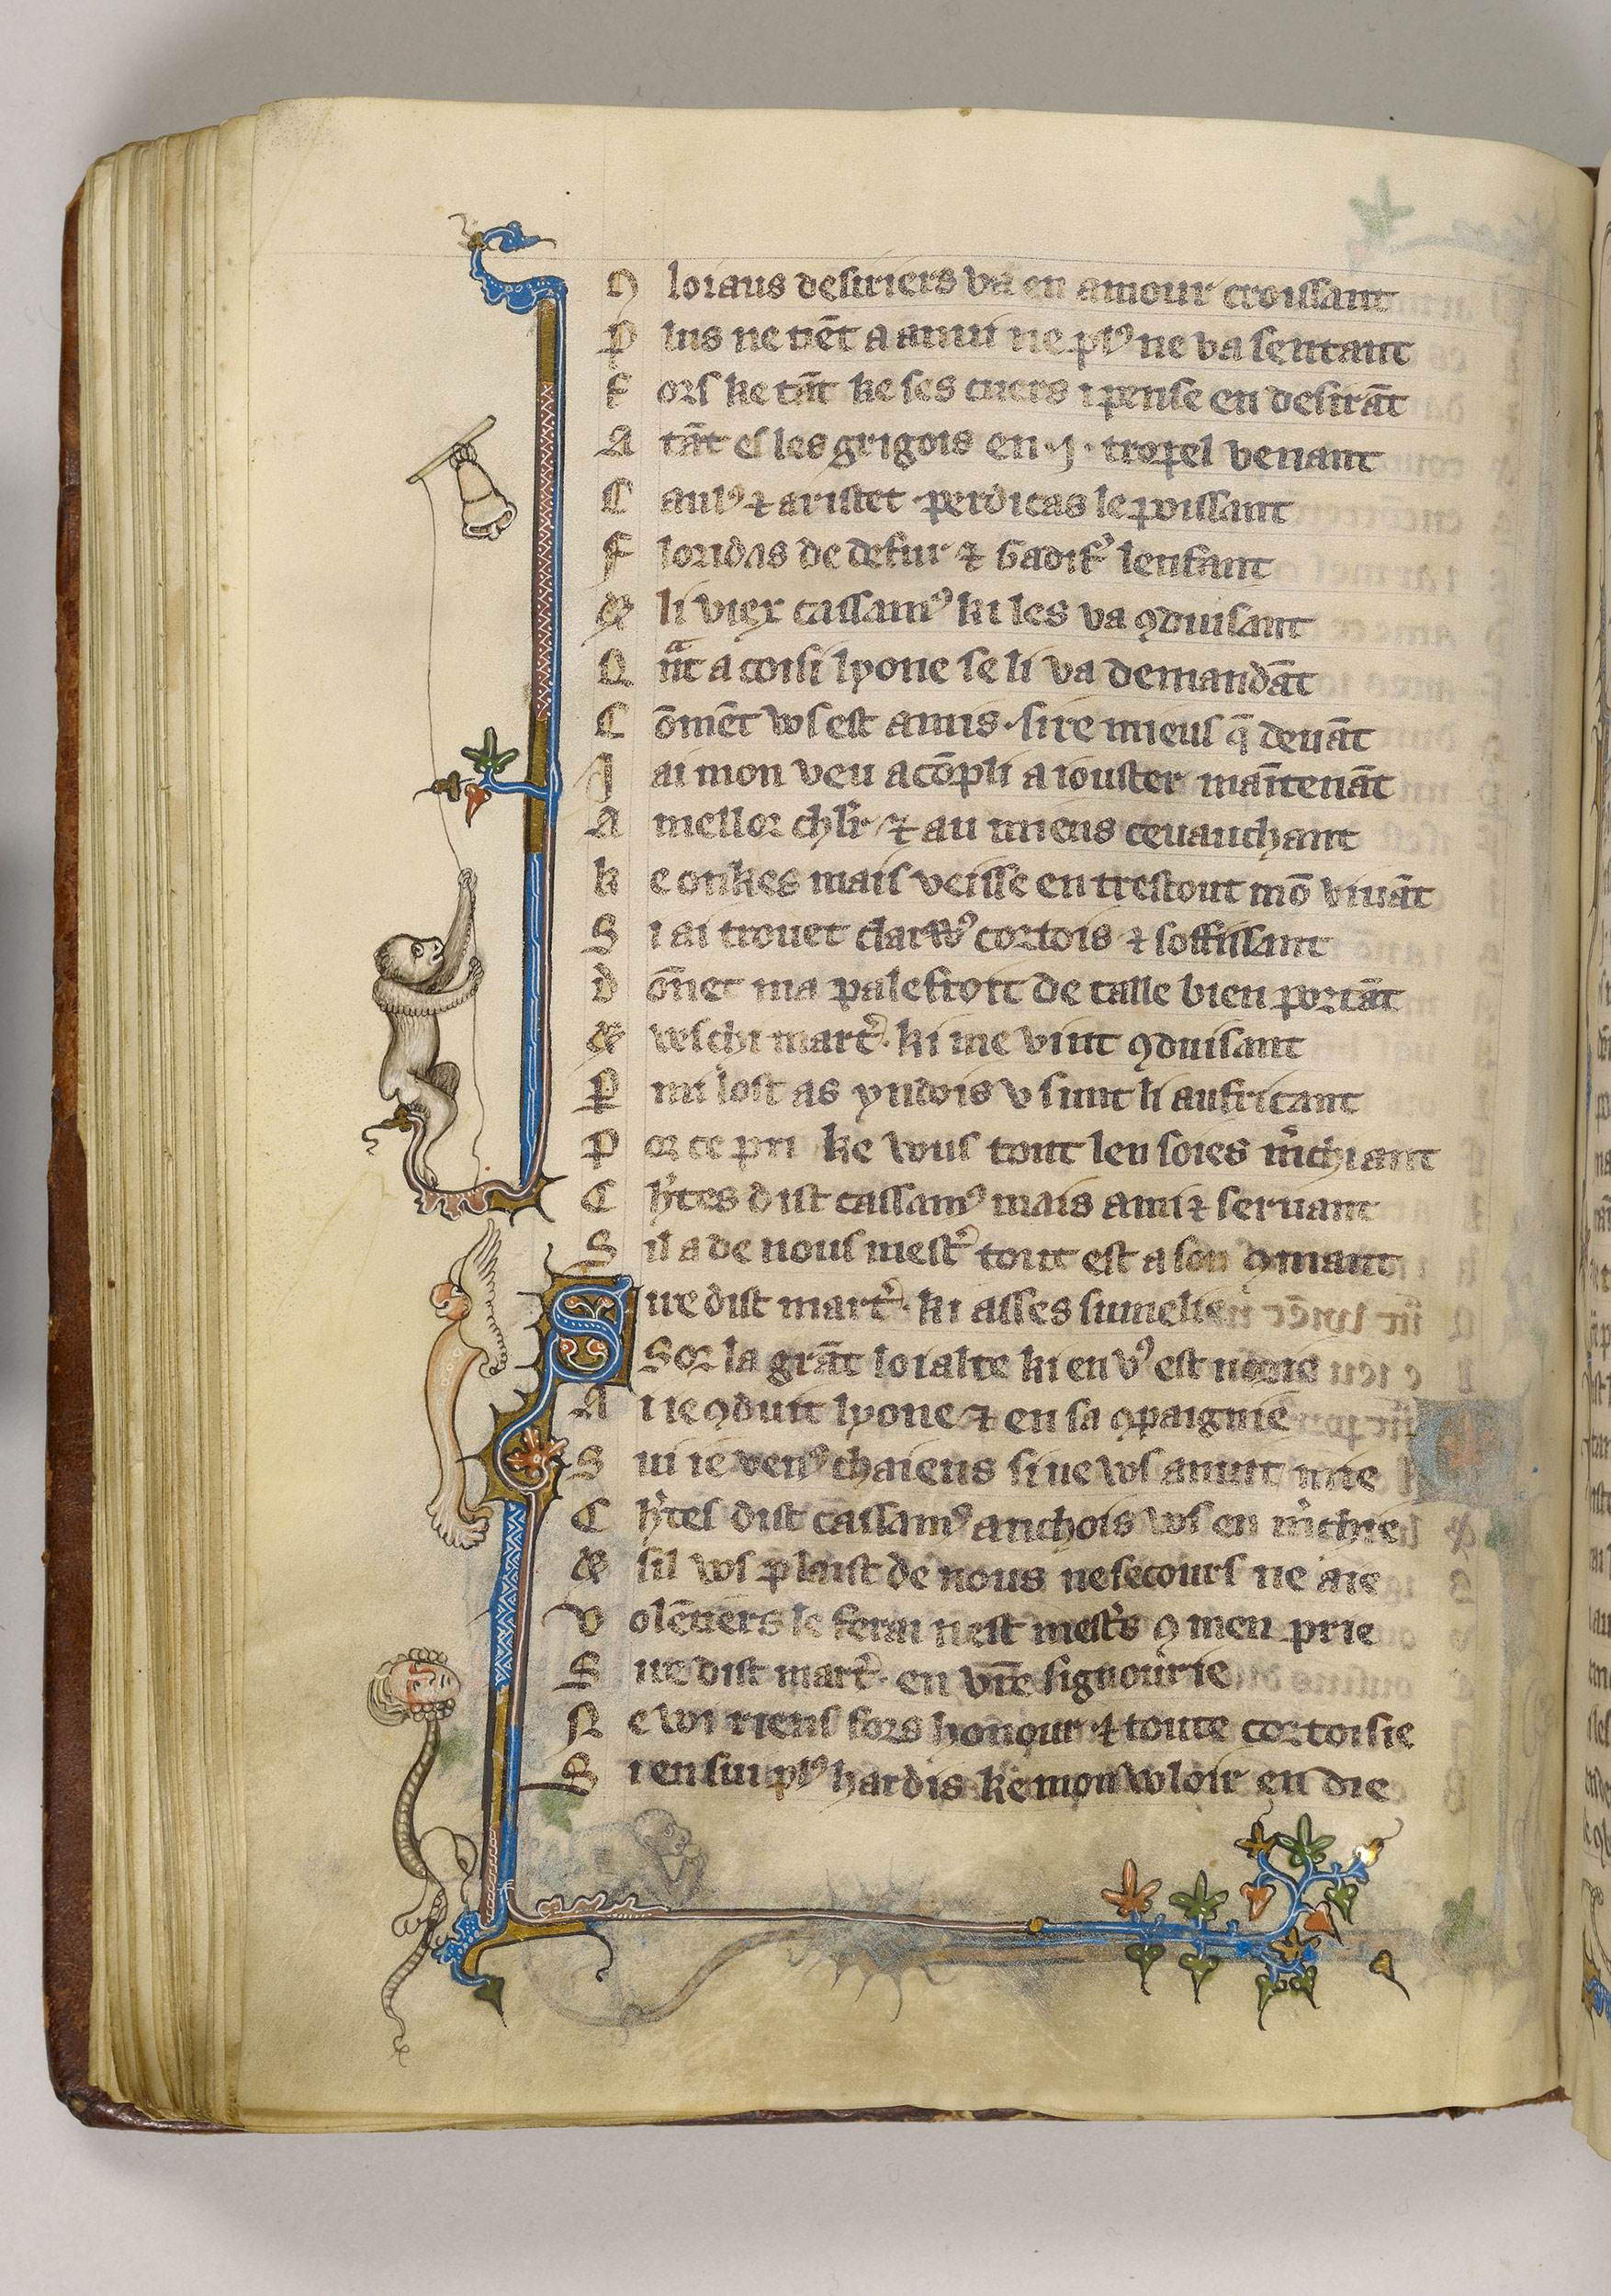 O loiaus desiriers va en amour croissant
P lus ne tiēt a amii ne plꝰ ne va sentant
F ors ke tāt ke ses cuers i pense en desirāt
A tāt es les grigois en ·j· tropel venant
C aulꝰ ⁊ aristet · perdicas le poissant
F loridas de defur ⁊ Gadifꝰ lenfant
& li viex cassamꝰ ki les va ꝯduisant
Q nͣt a coisi lyone se li va demandāt
C ōmēt ws est amis · sire mieus q̄ deuāt
J ai mon veu acōpli a iouster māitenāt
A mellor chl'r ⁊ au miens ceuauchant
k e onkes mais veisse en trestout mō viuāt
S i ai trouet clarwꝰ cortois ⁊ soffissant
D ōnet ma palefroit de talle bien portāt
& weschi mart'· ki me vint ꝯduisant
P mi lost as yndois v sunt li aufricant
P or ce pri ke wus tout len soies m'chiant
C h'tes dist cassamꝰ mais ami ⁊ seruant
S il a de nous mest' tout est a son ꝯmant
S ire dist mart'· ki asses sumelie
Sor la grāt loialte ki en vꝰ est norie
A i ie ꝯduit lyone ⁊ en sa ꝯpaignie
S ui ie venꝰ chaiens si ne ws anuit mie
C h'tes dist cassamꝰ anchois ws en m'chie
& sil ws plaist de nous ne secours ne aie
V olētiers le ferai nest mest's ꝯ men prie
S ire dist mart'· en vr̄e signourie
N e wi riens fors honour ⁊ toute cortoisie
S i en sui plꝰ hardis ke mon wloir en die